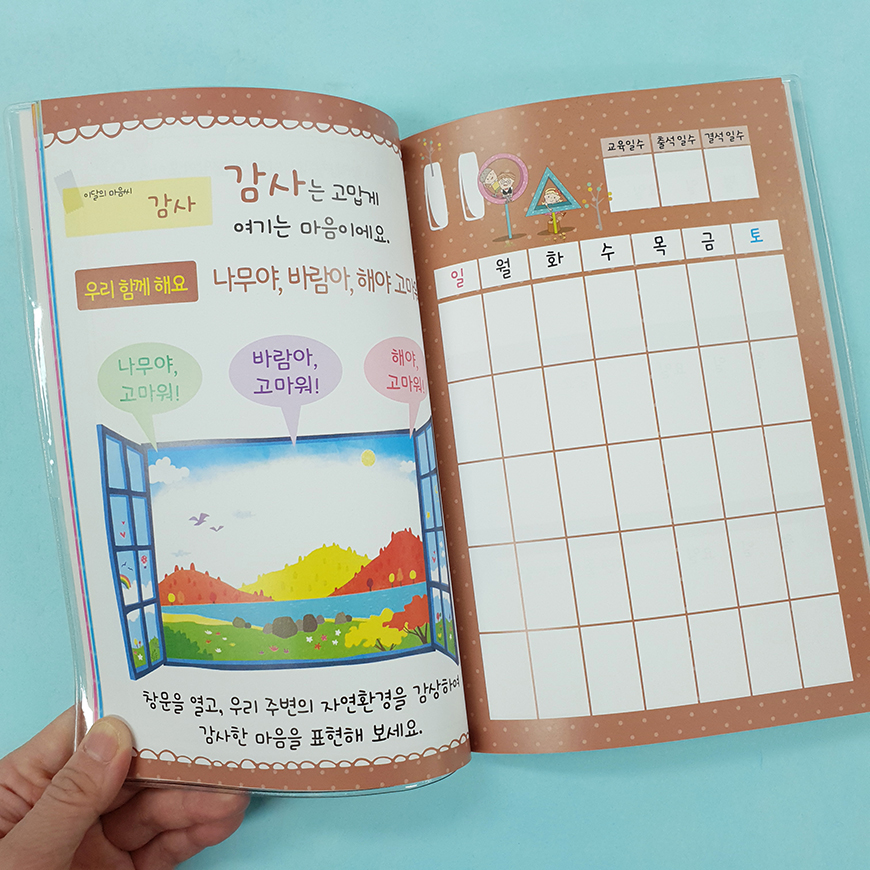 이달의 마음씨
감사
감사는 고맙게
여기는 마음이에요.
우리 함께 해요
나무야, 바람아, 해야 고마워
나무야,
고마워!
바람아,
고마워!
해야,
고마워!
창문을 열고, 우리 주변의 자연환경을 감상하여
감사한 마음을 표현해 보세요.
11
교육일수 출석일수 결석일수
일 월 화 수 목 금 토